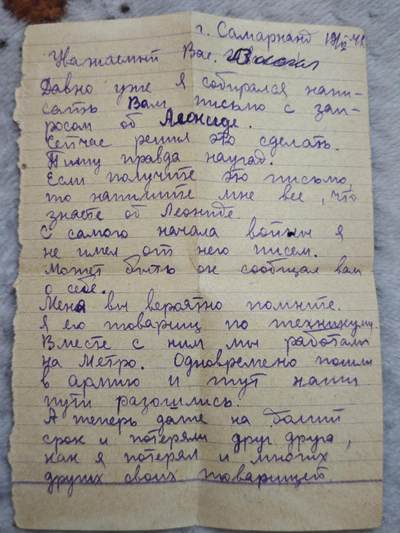 г. Самарканд
Уважаемый Вас.
Давно уже я собирался напи-
сать Вам письмо с зап-
росом об Леониде.
Сейчас решил это сделать.
Пишу правда наугад.
Если получите это письмо,
то напишите мне все, что
знаете об Леониде.
С самого начала войны я
не имел от него писем.
Может быть он сообщал вам
о себе.
Меня вы вероятно помните.
Я его товарищ по техникуму.
Вместе с ним мы работали
на Метро. Одновремено пошли
в армию и тут наши
пути разошлись.
А теперь даже на болший
срок и потеряли друг друга,
как я потерял и многих
других своих товарищей